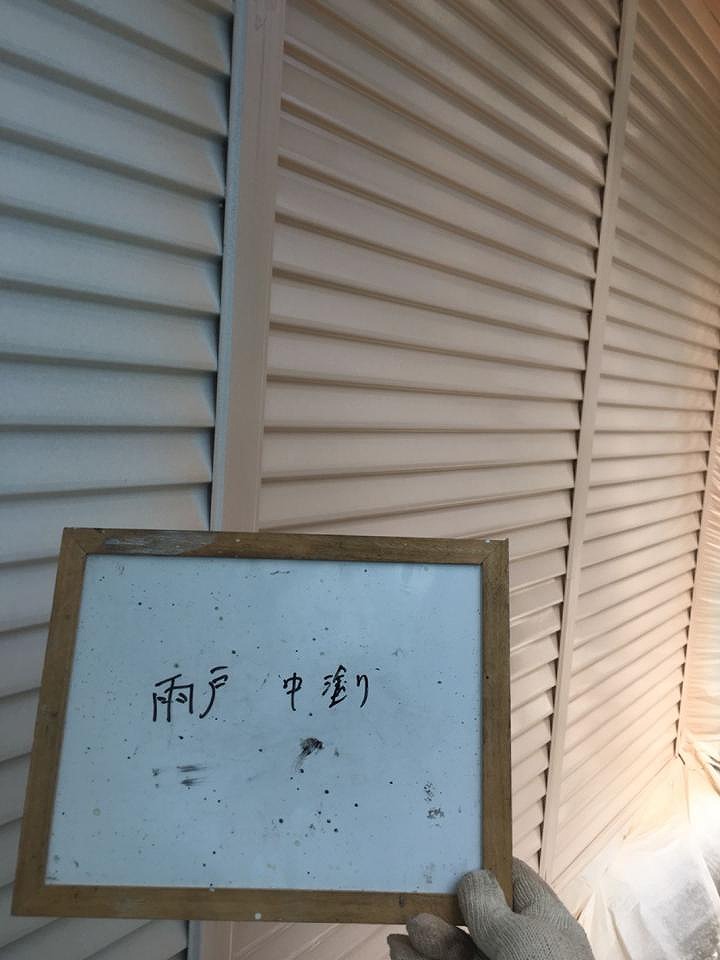 雨戸 中塗り